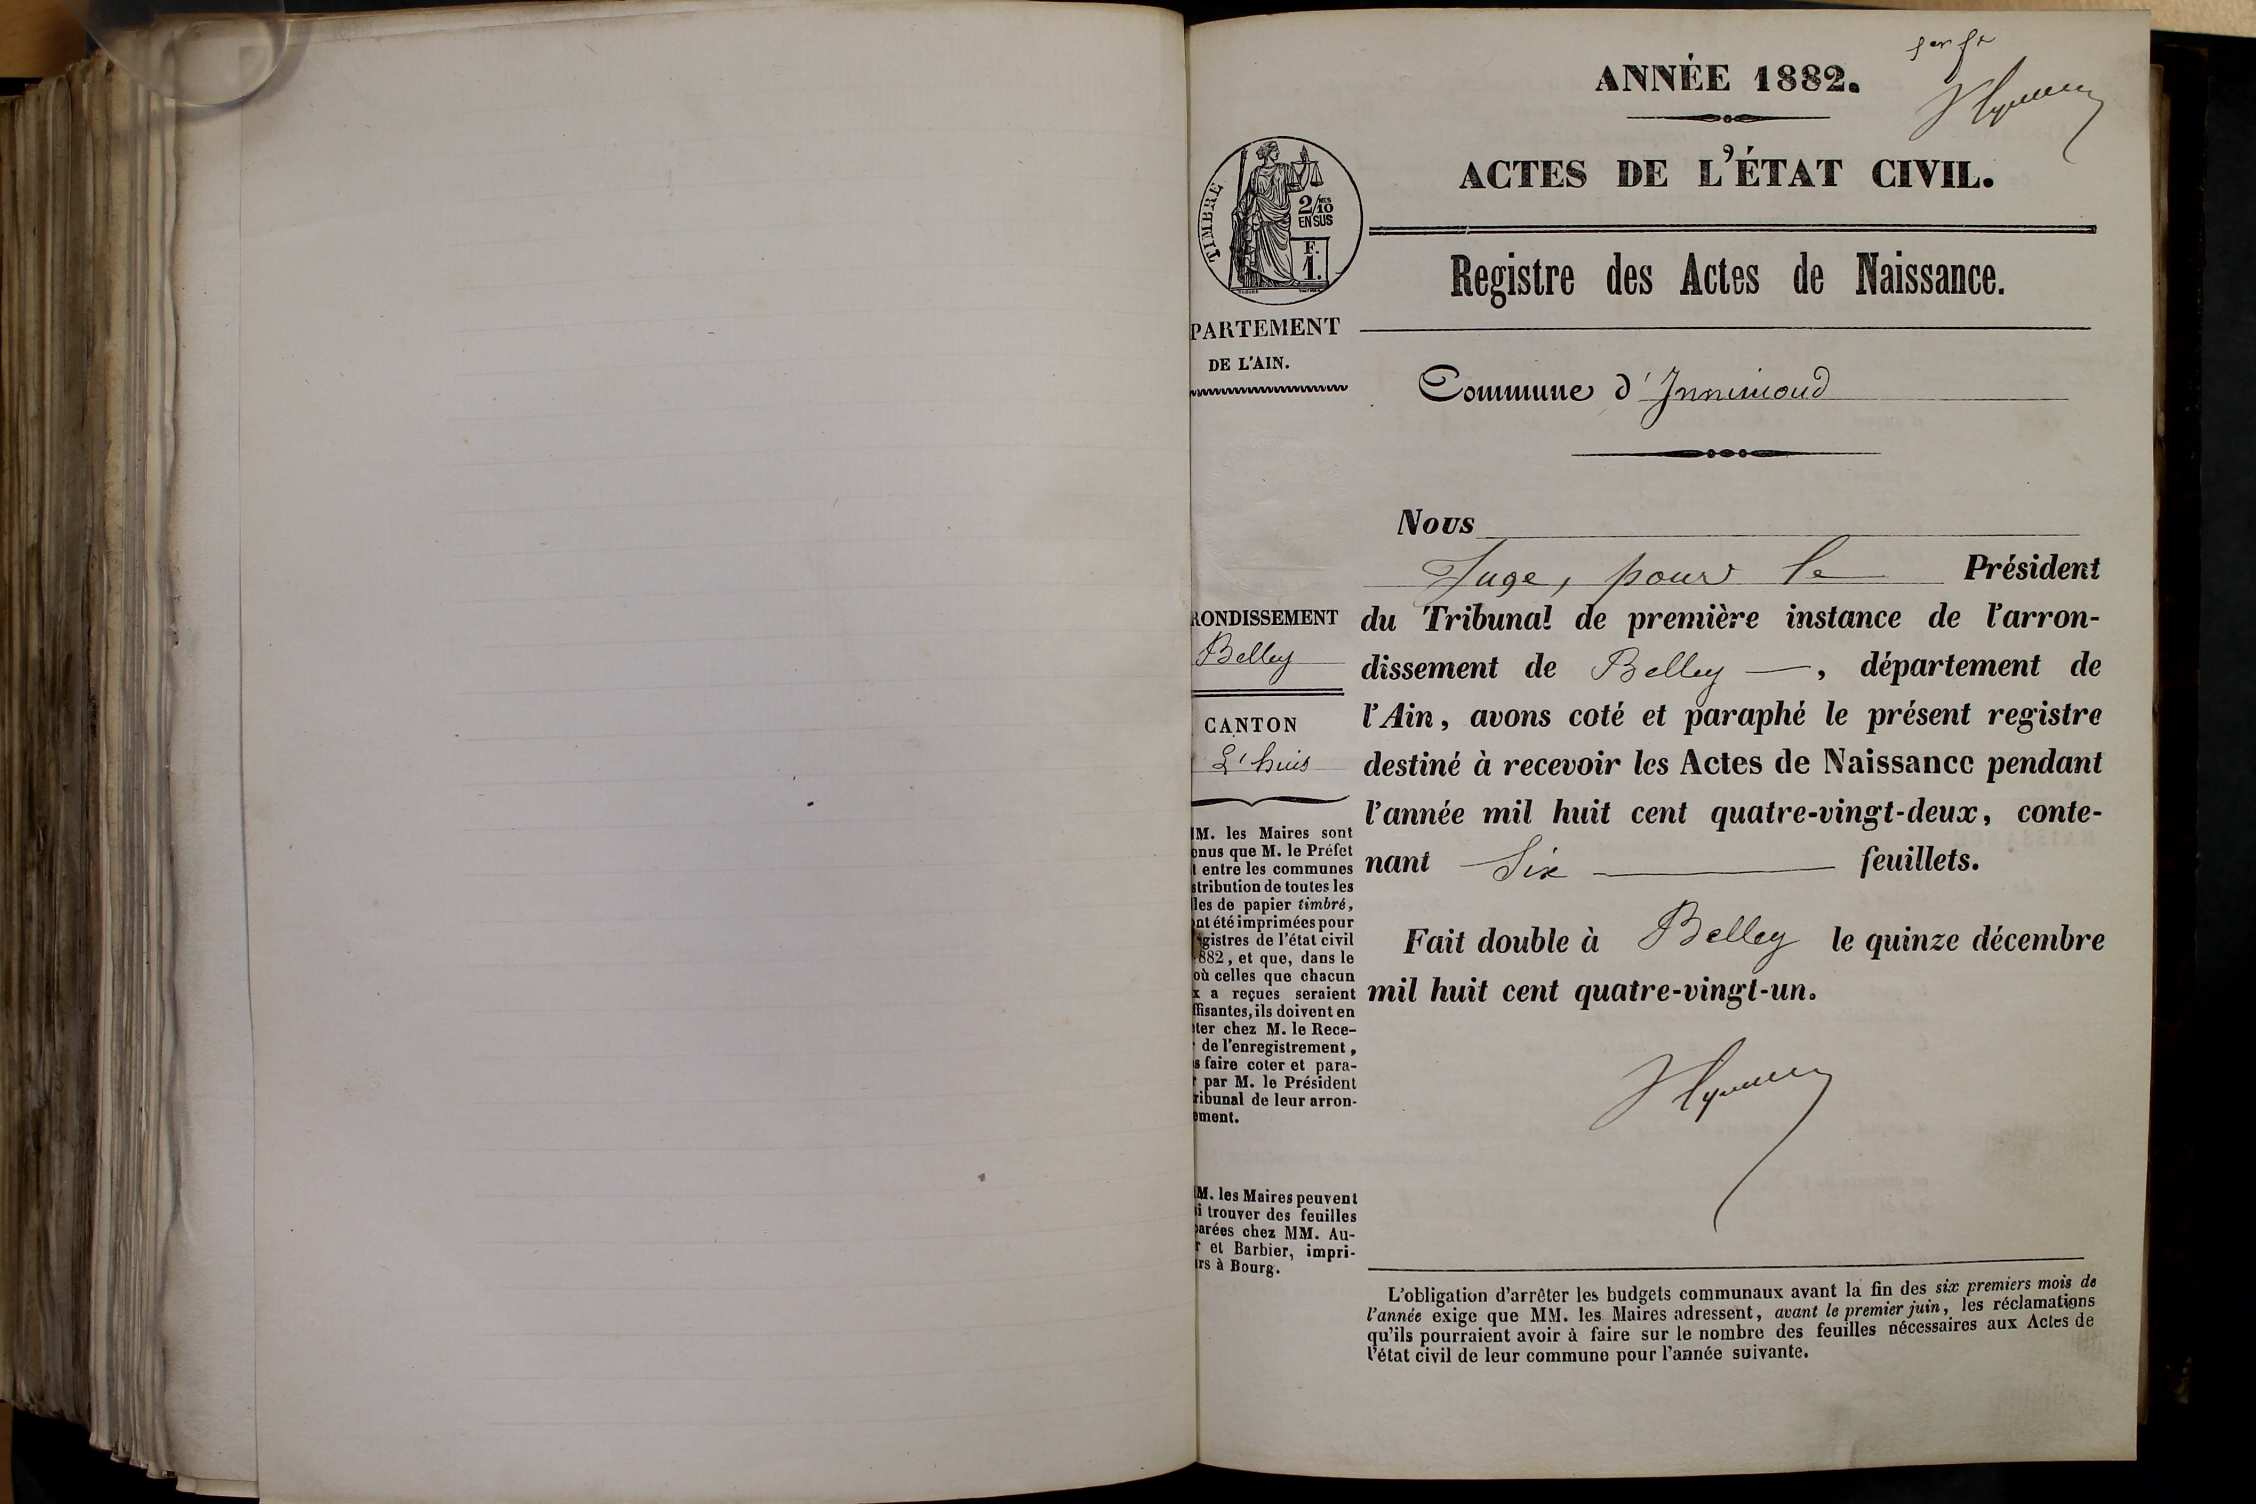 ANNÉE 1882.
ACTES DE L'ÉTAT CIVIL.
TIMBRE
2/10
MES
EN SUS
F.
1.
Registre des Actes de Naissance.
PARTEMENT
DE L'AIN.
Commune d'Innimond
Nous
Juge, pour le Président
du Tribunal de première instance de l'arron-
dissement de Belley —, département de
l'Ain, avons coté et paraphé le présent registre
destiné à recevoir les Actes de Naissance pendant
l'année mil huit cent quatre-vingt-deux, conte-
nant Six feuillets.
Fait double à Belley le quinze décembre
mil huit cent quatre-vingt-un.
RONDISSEMENT
Belley
CANTON
L'huis
M. les Maires sont
enus que M. le Préfet
t entre les communes
stribution de toutes les
les de papier timbré,
nt été imprimées pour
gistres de l'état civil
882, et que, dans le
où celles que chacun
x a reçues seraient
ffisantes, ils doivent en
ter chez M. le Rece-
r de l'enregistrement,
s faire coter et para-
r par M. le Président
ribunal de leur arron-
ement.
M. les Maires peuvent
i trouver des feuilles
parées chez MM. Au-
r et Barbier, impri-
rs à Bourg.
L'obligation d'arrêter les budgets communaux avant la fin des six premiers mois de
l'année exige que MM. les Maires adressent, avant le premier juin, les réclamations
qu'ils pourraient avoir à faire sur le nombre des feuilles nécessaires aux Actes de
l'état civil de leur commune pour l'année suivante.